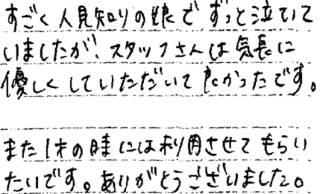 すごく人見知りの娘で ずっと泣いて
いましたが、スタッフさんは気長に
優しくしていただいて良かったです。
また1才の時には利用させてもらい
たいです。ありがとうございました。